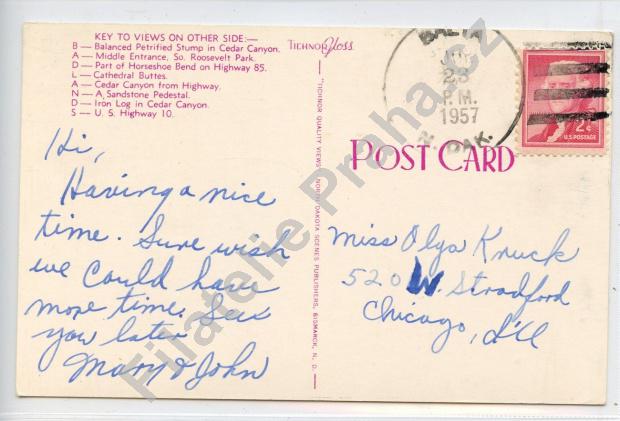 KEY TO VIEWS ON OTHER SIDE:—
B — Balanced Petrified Stump in Cedar Canyon.
A — Middle Entrance, So. Roosevelt Park.
D — Part of Horseshoe Bend on Highway 85.
L — Cathedral Buttes.
A — Cedar Canyon from Highway.
N — A Sandstone Pedestal.
D — Iron Log in Cedar Canyon.
S — U. S. Highway 10.
TICHNOR Gloss
"TICHNOR QUALITY VIEWS" NORTH DAKOTA SCENES PUBLISHERS, BISMARCK, N. D.
BALTA
JUL
23
P.M.
1957
N. DAK.
2¢
U.S. POSTAGE
POST CARD
Hi,
Having a nice
time. Sure wish
we could have
more time. See
you later
Mary & John
Miss Olga Kruck
520 W. Stradford
Chicago, Ill
Filatelie Praha.cz